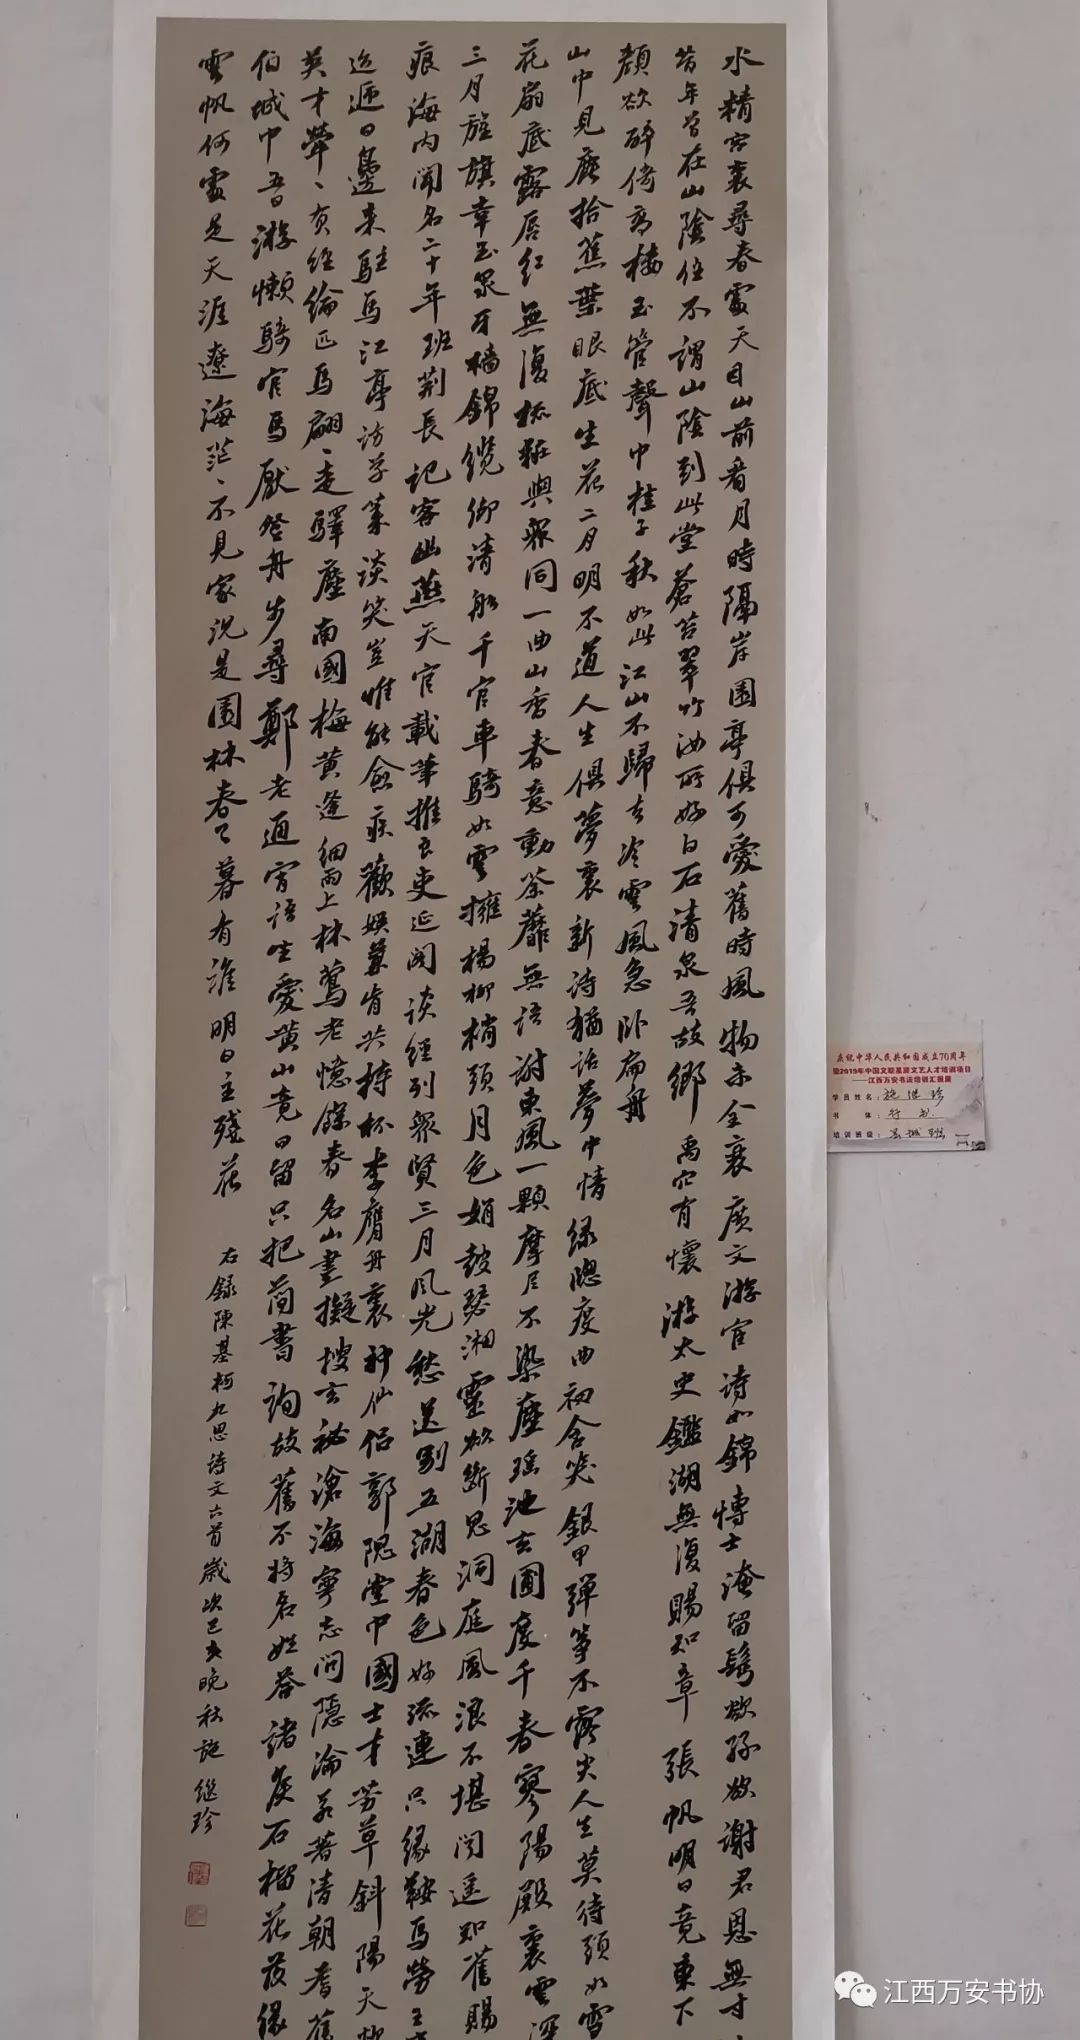 水精宫裏尋春處天目山前看月時隔岸園亭俱可愛舊時風物未全衰廣文游宦詩如錦博士淹留鬢欲絲欲謝君恩無寸
昔年曾在山陰住不謂山陰到此堂蒼苔翠竹汝所好白石清泉吾故鄉禹穴有懷游太史鑑湖無復賜知章張帆明日竟東下
顏欲醉倚高樓玉管聲中桂子秋如此江山不歸去冷雲風急卧扁舟
山中見鹿拾蕉葉眼底生花二月明不道人生俱夢裏新詩猶話夢中情緑牕度曲初含笑銀甲彈箏不露尖人生莫待頭如雪
花扇底露唇紅無復梳粧與衆同一曲山香春意動荼蘼無語謝東風一顆摩尼不染塵瑶池玄圃度千春寥陽殿裏雲深
三月旌旗幸玉泉牙檣錦纜御清船千官車騎如雲擁楊柳梢頭月色娟鼓瑟湘靈欲斷思洞庭風浪不堪聞遥知舊賜
痕海内聞名二十年班荆長記客幽燕天官載筆推良吏延閣談經列衆賢三月風光愁送别五湖春色好流連只緣鞍馬勞王
迢遞日邊来駐馬江亭訪草萊談笑豈惟能愈疾歡娱兼肯共持杯李膺舟裏神仙侣郭隗堂中國士才芳草斜陽天
英才犖〻負經綸匹馬翩〻走驛塵南國梅黄逢細雨上林鶯老憶餘春名山盡擬搜玄秘滄海寧忘問隱淪若著清朝耆舊
伯城中吾日游懶騎官馬厭登舟步尋鄭老通宵語坐愛黄山竟日留只把簡書詢故舊不將名姓答諸侯石榴花發緣
雲帆何處是天涯遼海茫〻不見家況是園林春已暮有誰明日主殘花
右録陳基柯九思詩文六首歲次己亥晚秋施继珍
庆祝中华人民共和国成立70周年
暨2019年中国文联基层文艺人才培训项目
——江西万安书法培训汇报展
学员姓名：施继珍
书体：行书
培训班级：县城班
江西万安书协